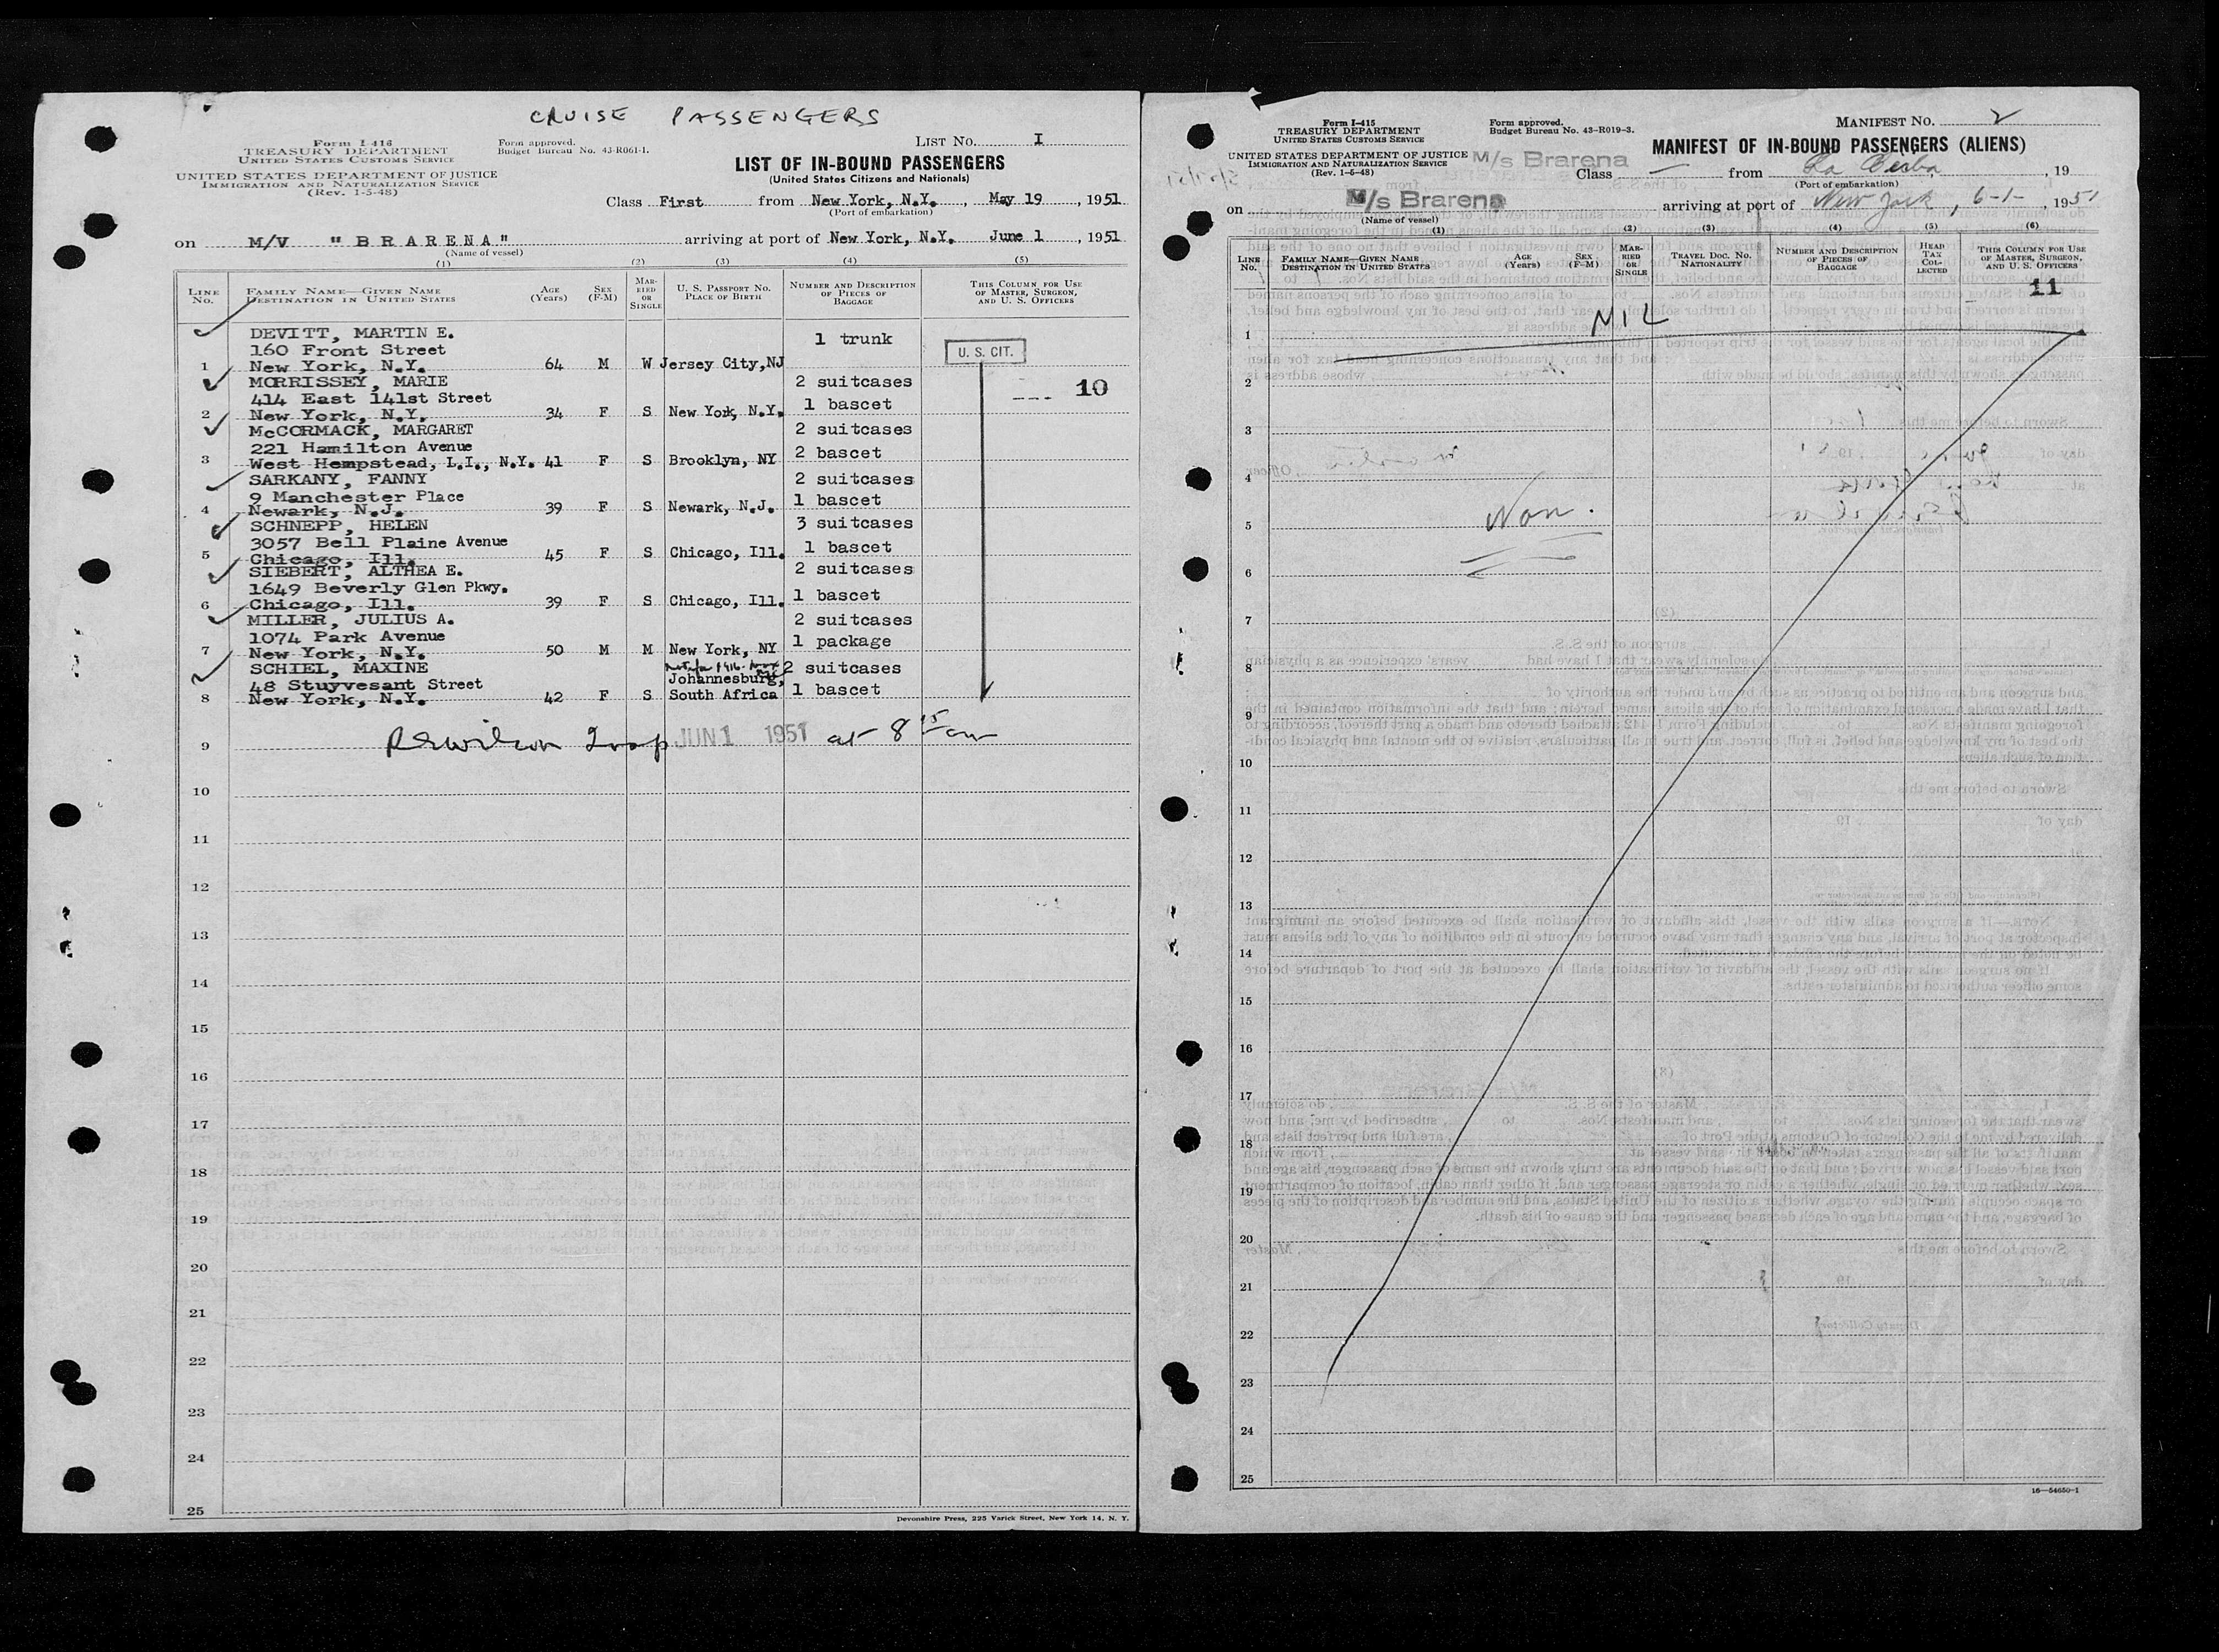 CRUISE PASSENGERS
Form I-416
TREASURY DEPARTMENT
UNITED STATES CUSTOMS SERVICE
UNITED STATES DEPARTMENT OF JUSTICE
IMMIGRATION AND NATURALIZATION SERVICE
(Rev. 1-5-48)
Form approved.
Budget Bureau No. 43-R061-1.
LIST No. I
LIST OF IN-BOUND PASSENGERS
(United States Citizens and Nationals)
Class First from New York, N.Y., May 19, 1951
(Port of embarkation)
on M/V "BRARENA" arriving at port of New York, N.Y. June 1, 1951
(Name of vessel)
(1) (2) (3) (4) (5)
LINE No.
FAMILY NAME—GIVEN NAME
DESTINATION IN UNITED STATES
AGE (Years)
SEX (F-M)
MARRIED OR SINGLE
U. S. PASSPORT NO.
PLACE OF BIRTH
NUMBER AND DESCRIPTION OF PIECES OF BAGGAGE
THIS COLUMN FOR USE OF MASTER, SURGEON, AND U. S. OFFICERS
DEVITT, MARTIN E.
160 Front Street 1 trunk
1 New York, N.Y. 64 M W Jersey City,NJ
U. S. CIT.
MORRISSEY, MARIE 2 suitcases 10
414 East 141st Street
2 New York, N.Y. 34 F S New York, N.Y. 1 bascet
McCORMACK, MARGARET 2 suitcases
221 Hamilton Avenue
3 West Hempstead, L.I., N.Y. 41 F S Brooklyn, NY 2 bascet
SARKANY, FANNY 2 suitcases
9 Manchester Place 1 bascet
4 Newark, N.J. 39 F S Newark, N.J.
SCHNEPP, HELEN 3 suitcases
3057 Bell Plaine Avenue
5 Chicago, Ill. 45 F S Chicago, Ill. 1 bascet
SIEBERT, ALTHEA E. 2 suitcases
1649 Beverly Glen Pkwy.
6 Chicago, Ill. 39 F S Chicago, Ill. 1 bascet
MILLER, JULIUS A. 2 suitcases
1074 Park Avenue 1 package
7 New York, N.Y. 50 M M New York, NY
SCHIEL, MAXINE 2 suitcases
48 Stuyvesant Street Johannesburg,
8 New York, N.Y. 42 F S South Africa 1 bascet
9 JUN 1 1951 at 8 15 am
10
11
12
13
14
15
16
17
18
19
20
21
22
23
24
25
Devonshire Press, 225 Varick Street, New York 14, N. Y.
Form I-415
TREASURY DEPARTMENT
UNITED STATES CUSTOMS SERVICE
UNITED STATES DEPARTMENT OF JUSTICE
IMMIGRATION AND NATURALIZATION SERVICE
(Rev. 1-5-48)
Form approved.
Budget Bureau No. 43-R019-3.
MANIFEST No. 2
MANIFEST OF IN-BOUND PASSENGERS (ALIENS)
M/s Brarena
Class — from La Ceiba, 19
(Port of embarkation)
on M/s Brarena arriving at port of New York, 6-1-, 1951
(Name of vessel)
(1) (2) (3) (4) (5) (6)
LINE No.
FAMILY NAME—GIVEN NAME
DESTINATION IN UNITED STATES
AGE (Years)
SEX (F-M)
MARRIED OR SINGLE
TRAVEL DOC. NO.
NATIONALITY
NUMBER AND DESCRIPTION OF PIECES OF BAGGAGE
HEAD TAX COLLECTED
THIS COLUMN FOR USE OF MASTER, SURGEON, AND U. S. OFFICERS
11
NIL
1
2
3
4
5
6
7
8
9
10
11
12
13
14
15
16
17
18
19
20
21
22
23
24
25
16—54650-1